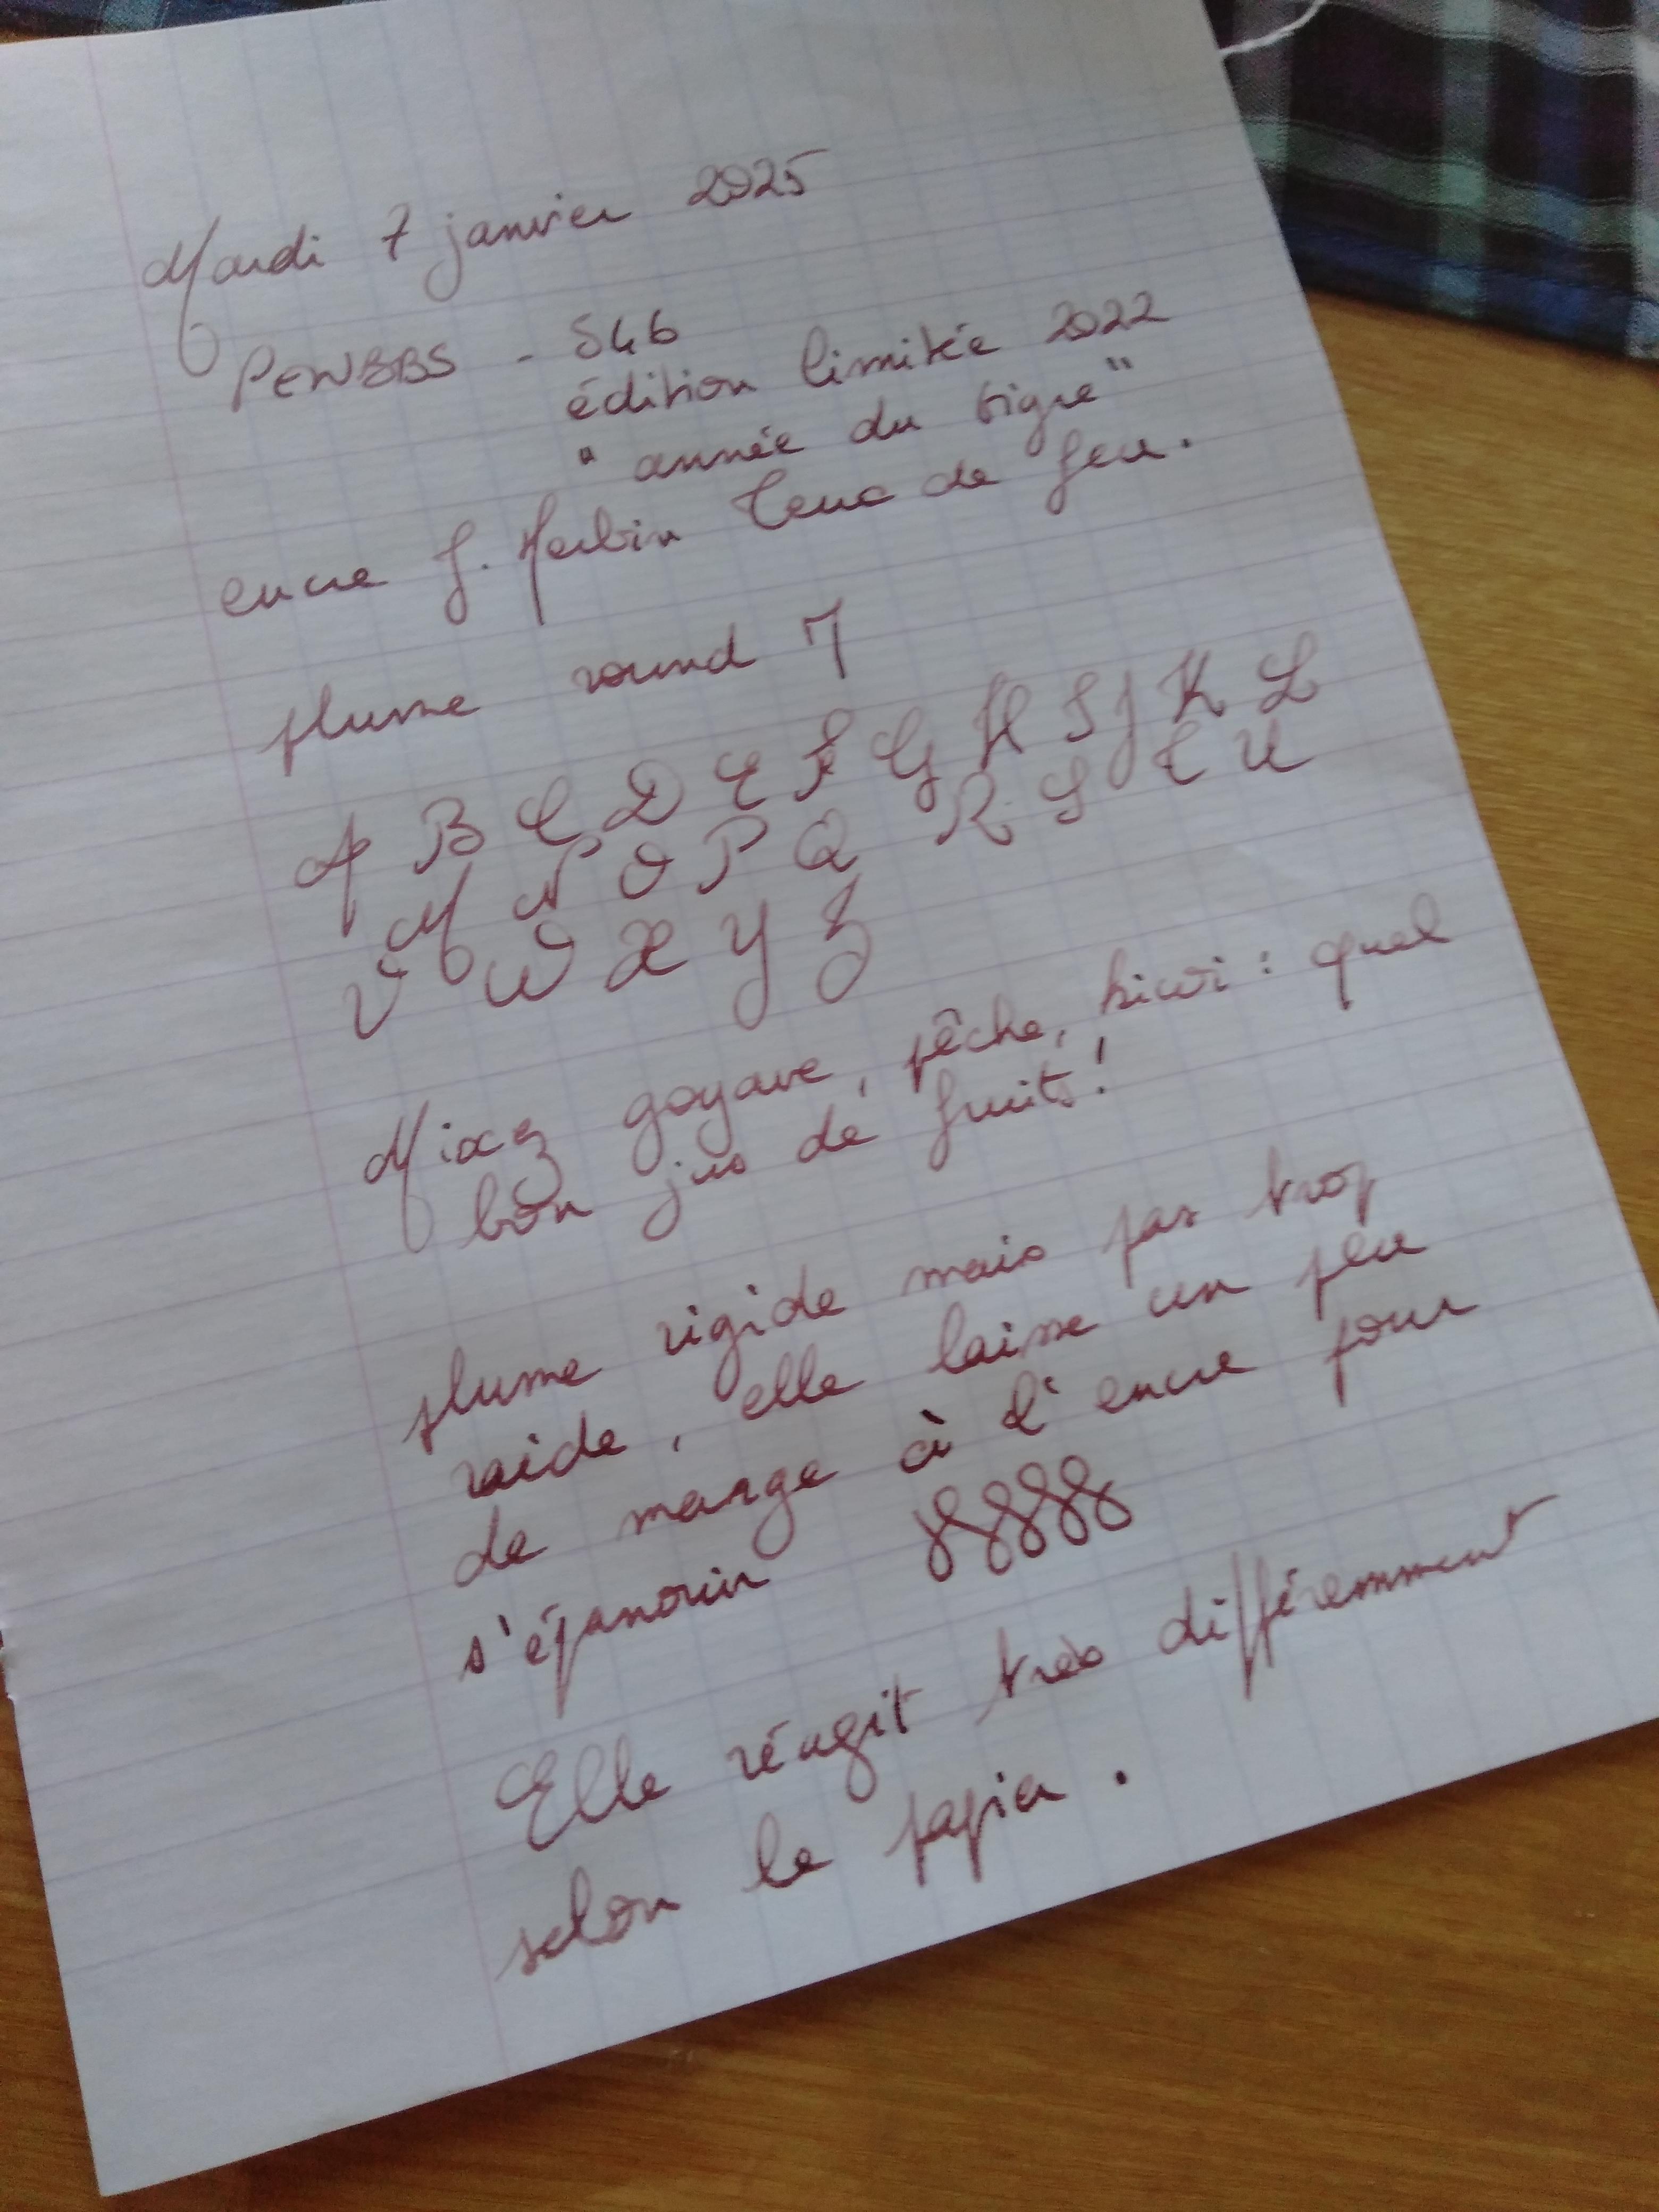 Mardi 7 janvier 2025
PENBBS - 546
édition limitée 2022
"année du tigre"
encre J. Herbin Terre de feu.
plume round M
A B C D E F G H I J K L
M N O P Q R S T U
V W X Y Z
Mixez goyave, pêche, kiwi : quel
bon jus de fruits !
plume rigide mais pas trop
raide, elle laisse un peu
de marge à l'encre pour
s'épanouir
Elle réagit très différemment
selon le papier.